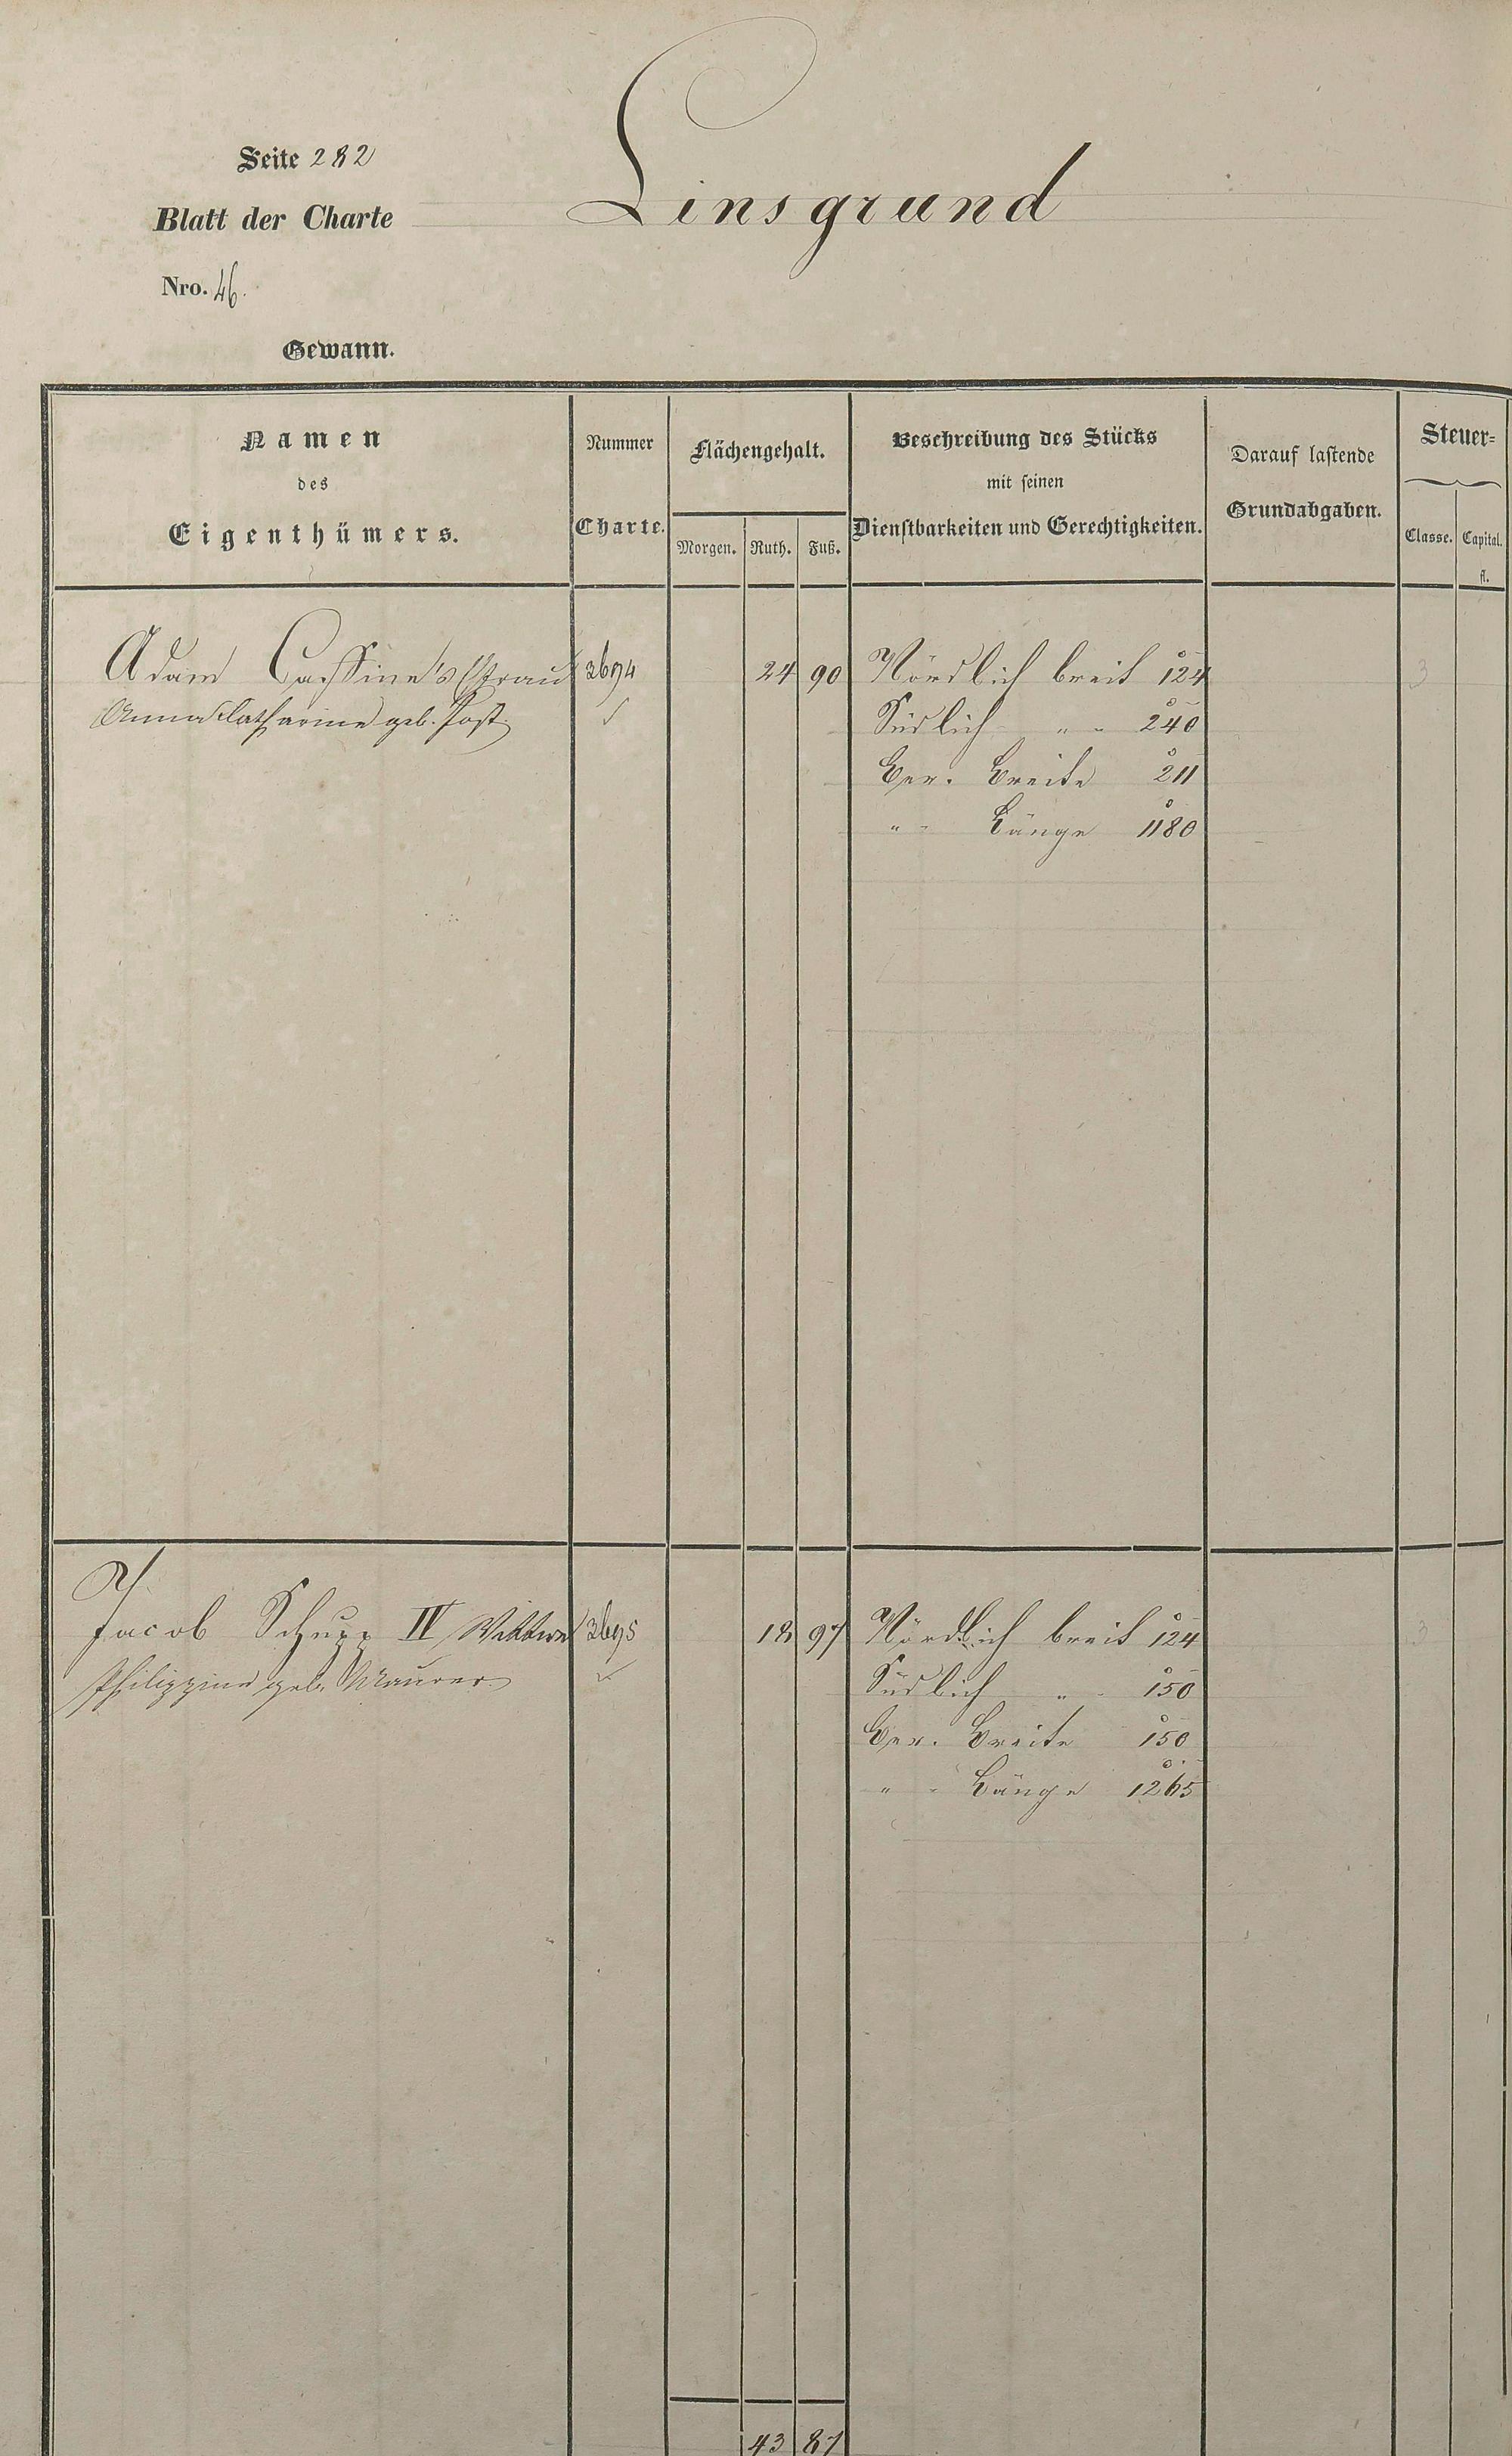 Seite 282
Linsgrund
Blatt der Charte
Nro. 46.
Gewann.
Namen
des
Eigenthümers.
Nummer
Charte.
Flächengehalt.
Morgen. Ruth. Fuß.
Beschreibung des Stücks
mit seinen
Dienstbarkeiten und Gerechtigkeiten.
Darauf lastende
Grundabgaben.
Steuer=
Classe. Capital.
fl.
Adam Cassine's Frau 2694 24 90 Nördlich breit 124 3
Anna Catharine geb. Post. Südlich " " 240
Ger. Breite 211
" " Länge 1180
Jacob Schupp IV Wittwe 2695 18 97 Nördlich breit 124 3
Philippine geb. Maurer Südlich " " 150
Ger. Breite 150
" " Länge 1265
43 87